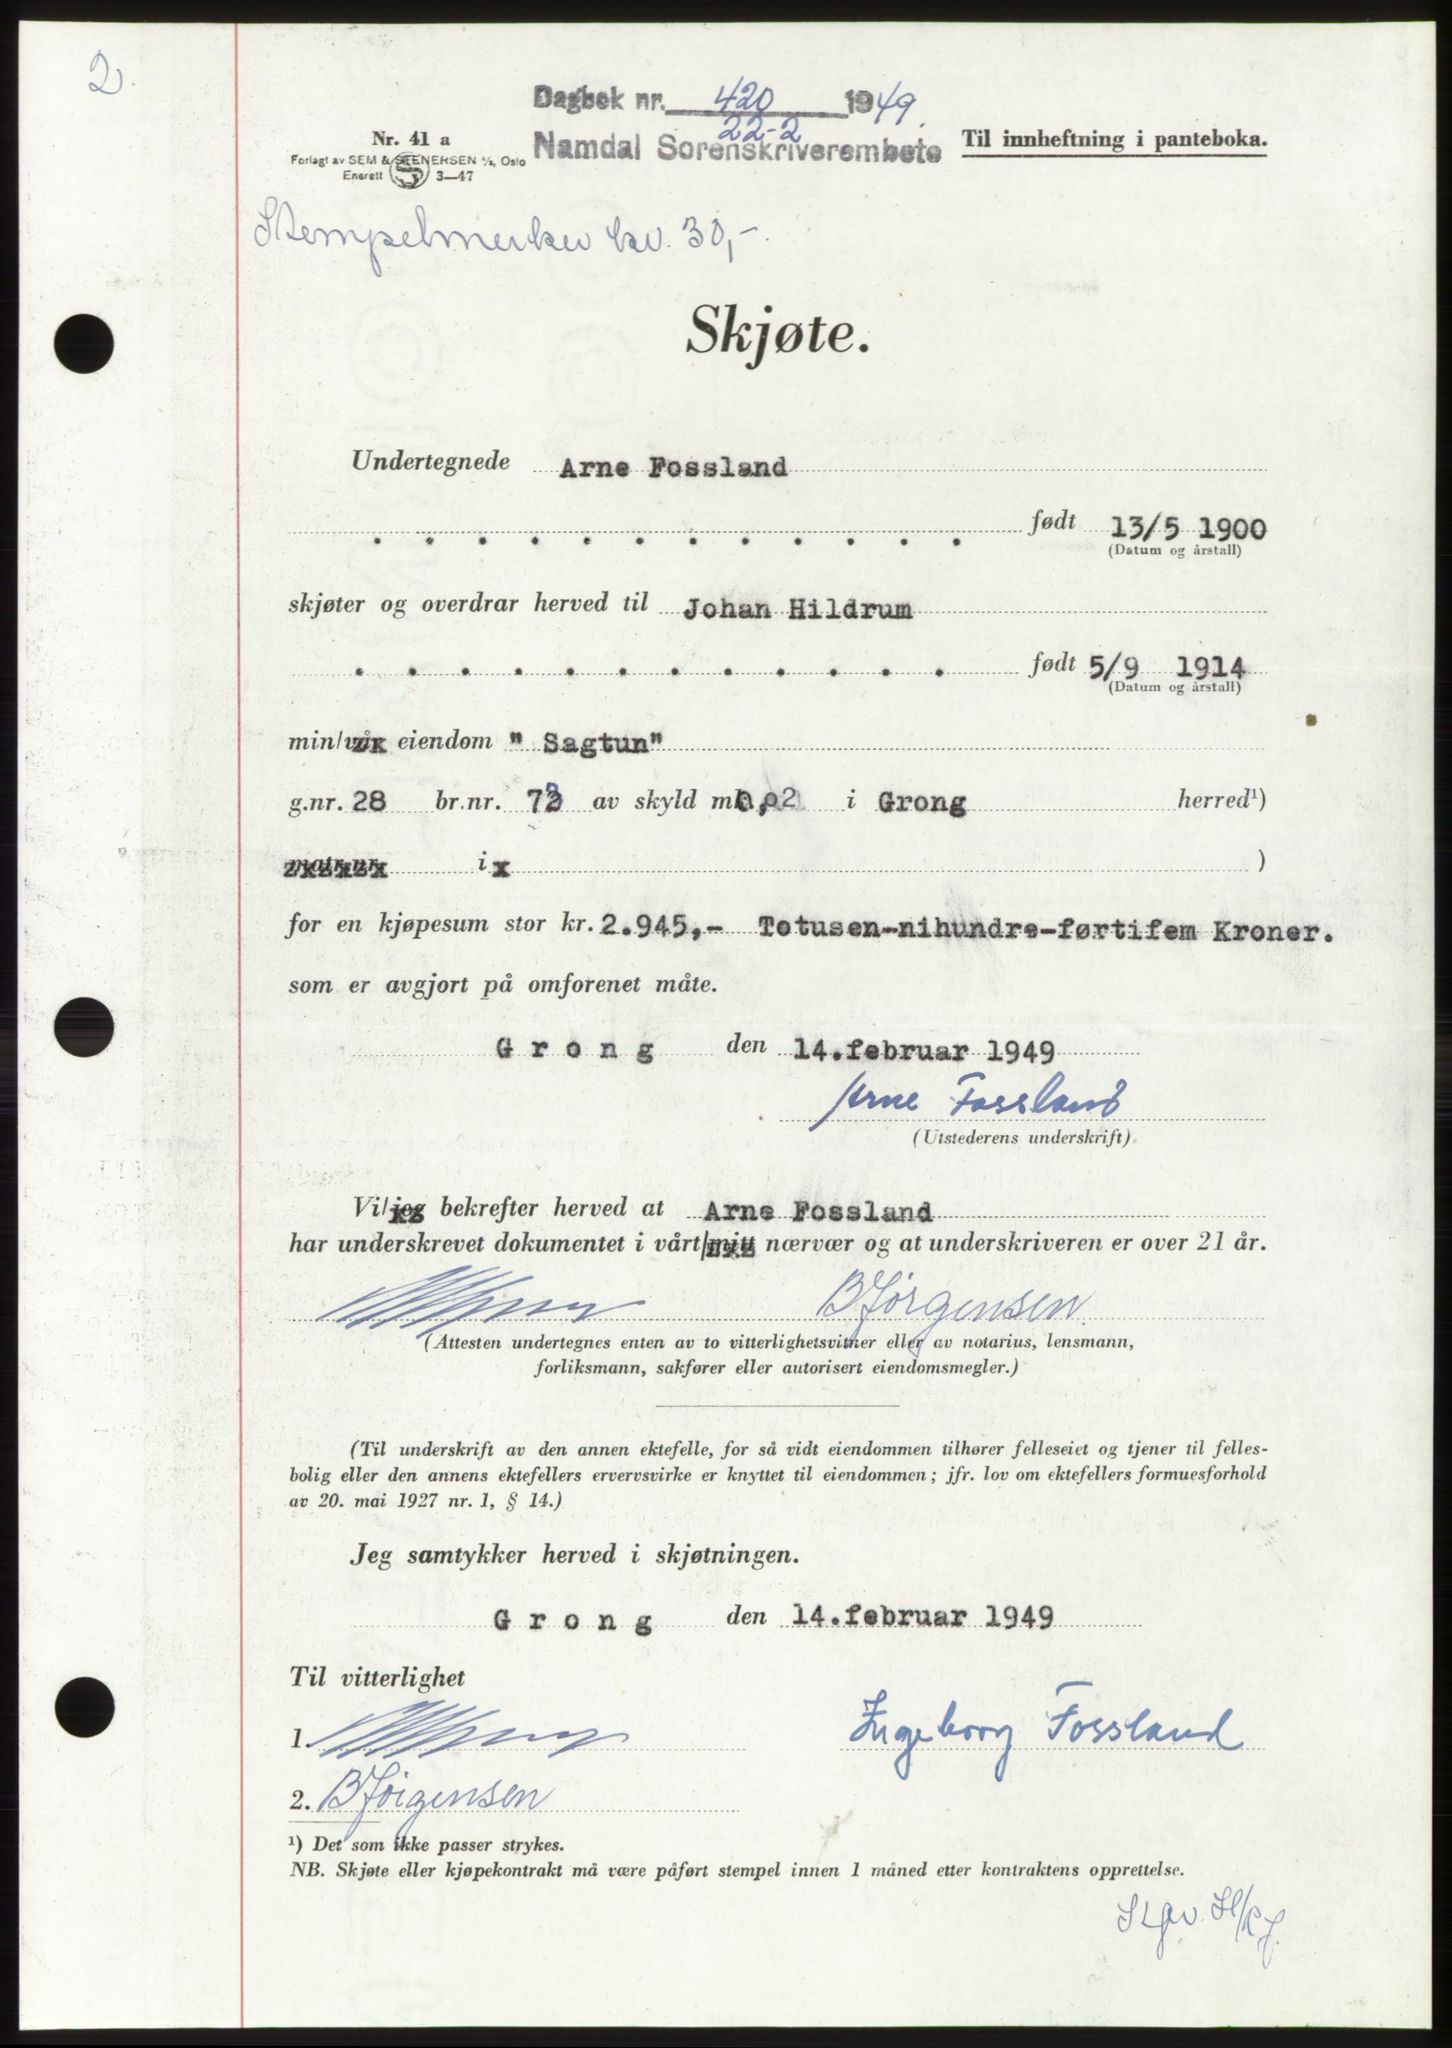 2.
Dagbok nr. 420 1949.
22-2
Nr. 41 a
Namdal Sorenskriverembete
Til innheftning i panteboka.
Forlagt av SEM & STENERSEN A/S, Oslo
Enerett 3—47
Stempelmerker kr. 30,-.
Skjøte.
Undertegnede Arne Fossland
født 13/5 1900
(Datum og årstall)
skjøter og overdrar herved til Johan Hildrum
født 5/9 1914
(Datum og årstall)
min/vår eiendom " Sagtun"
g.nr. 28 br.nr. 73 av skyld mk 0,02 i Grong herred¹)
matr.nr. i x )
for en kjøpesum stor kr. 2.945,- Totusen-nihundre-førtifem Kroner.
som er avgjort på omforenet måte.
G r o n g den 14.februar 1949
Arne Fossland
(Utstederens underskrift)
Vi/jeg bekrefter herved at Arne Fossland
har underskrevet dokumentet i vårt/mitt nærvær og at underskriveren er over 21 år.
BJørgensen.
(Attesten undertegnes enten av to vitterlighetsvitner eller av notarius, lensmann,
forliksmann, sakfører eller autorisert eiendomsmegler.)
(Til underskrift av den annen ektefelle, for så vidt eiendommen tilhører felleseiet og tjener til felles-
bolig eller den annens ektefellers ervervsvirke er knyttet til eiendommen; jfr. lov om ektefellers formuesforhold
av 20. mai 1927 nr. 1, § 14.)
Jeg samtykker herved i skjøtningen.
G r o n g den 14.februar 1949
Til vitterlighet
1.
Ingeborg Fossland
2. BJørgensen
¹) Det som ikke passer strykes.
NB. Skjøte eller kjøpekontrakt må være påført stempel innen 1 måned etter kontraktens opprettelse.